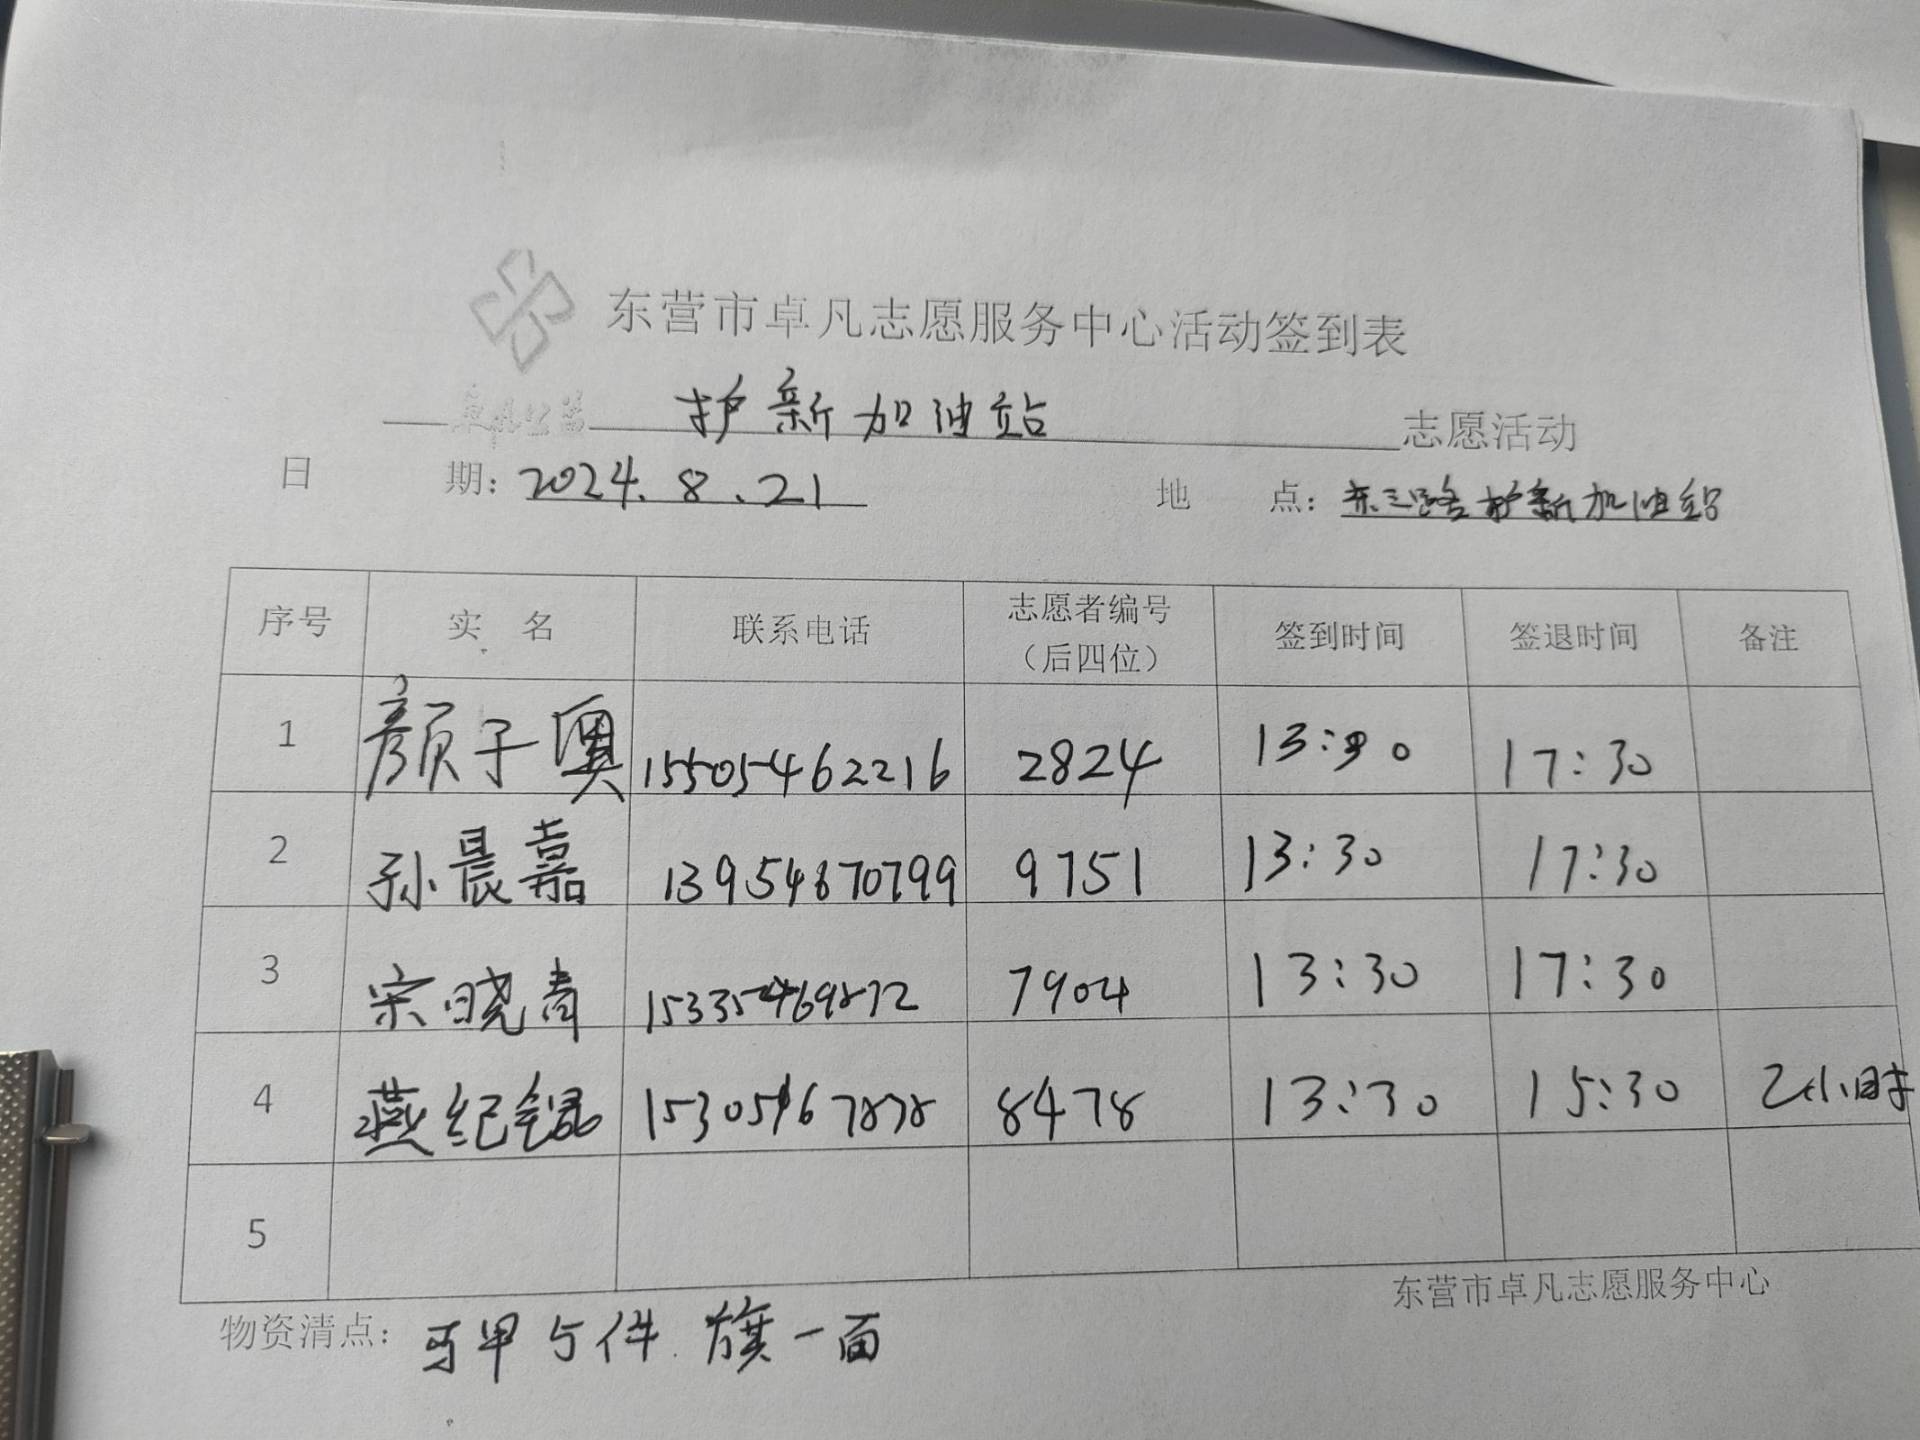 东营市卓凡志愿服务中心活动签到表
护新加油站 志愿活动
日 期: 2024.8.21 地 点: 东三路护新加油站
序号 实 名 联系电话 志愿者编号（后四位） 签到时间 签退时间 备注
1 颜子澳 15505462216 2824 13:30 17:30
2 孙晨嘉 13954670799 9751 13:30 17:30
3 宋晓青 15335469872 7904 13:30 17:30
4 燕纪锟 15305467878 8478 13:30 15:30 2小时
5
东营市卓凡志愿服务中心
物资清点: 马甲5件 旗一面